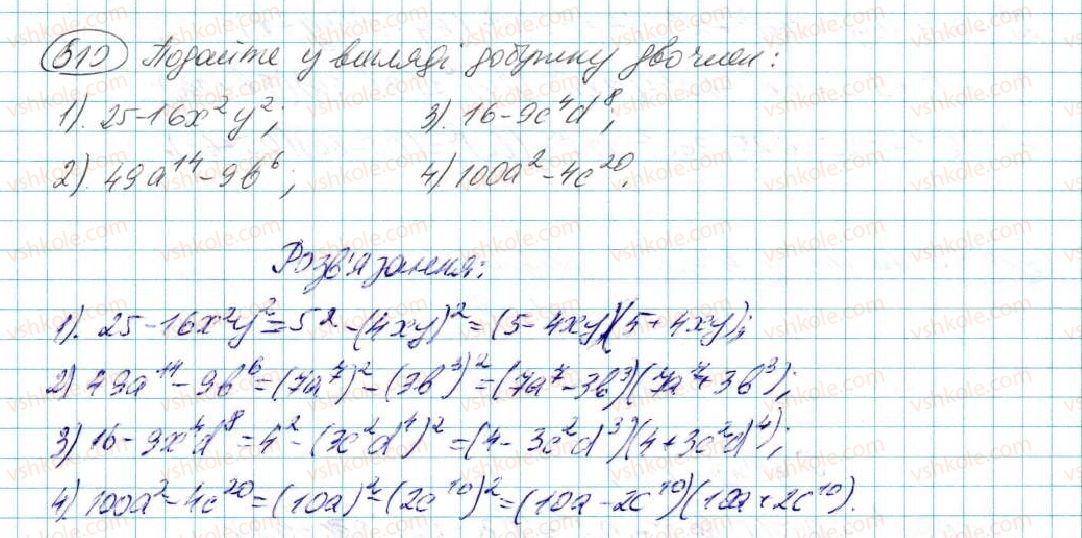 510 Подайте у вигляді добутку двочлен:
1). 25-16x²y²; 3). 16-9c⁴d⁸;
2) 49a¹⁴-9b⁶; 4) 100a²-4c²⁰.
Розв'язання:
1). 25-16x²y²=5²-(4xy)²=(5-4xy)(5+4xy);
2) 49a¹⁴-9b⁶=(7a⁷)²-(3b³)²=(7a⁷-3b³)(7a⁷+3b³);
3) 16-9x⁴d⁸=4²-(3c²d⁴)²=(4-3c²d³)(4+3c²d⁴);
4) 100a²-4c²⁰=(10a)²-(2c¹⁰)²=(10a-2c¹⁰)(10a+2c¹⁰).